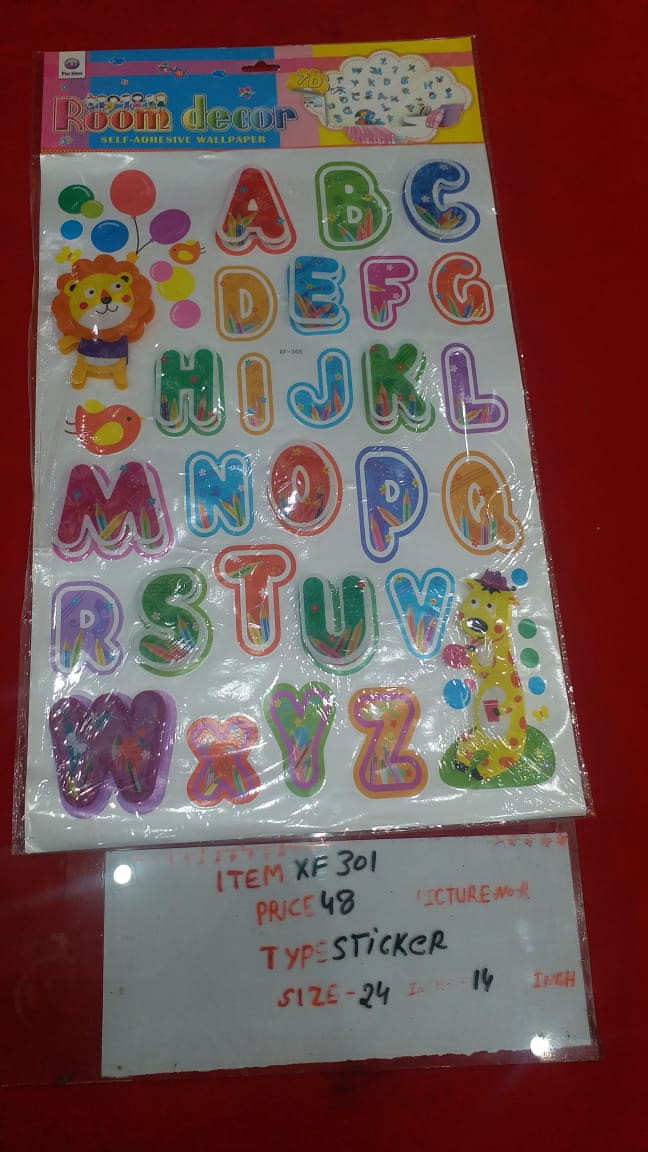 7D
Room decor
SELF-ADHESIVE WALLPAPER
A B C
D E F G
XF-305
H I J K L
M N O P Q
R S T U V
W X Y Z
ITEM XF 301
PRICE 48
TYPE STICKER
SIZE - 24 14 INCH